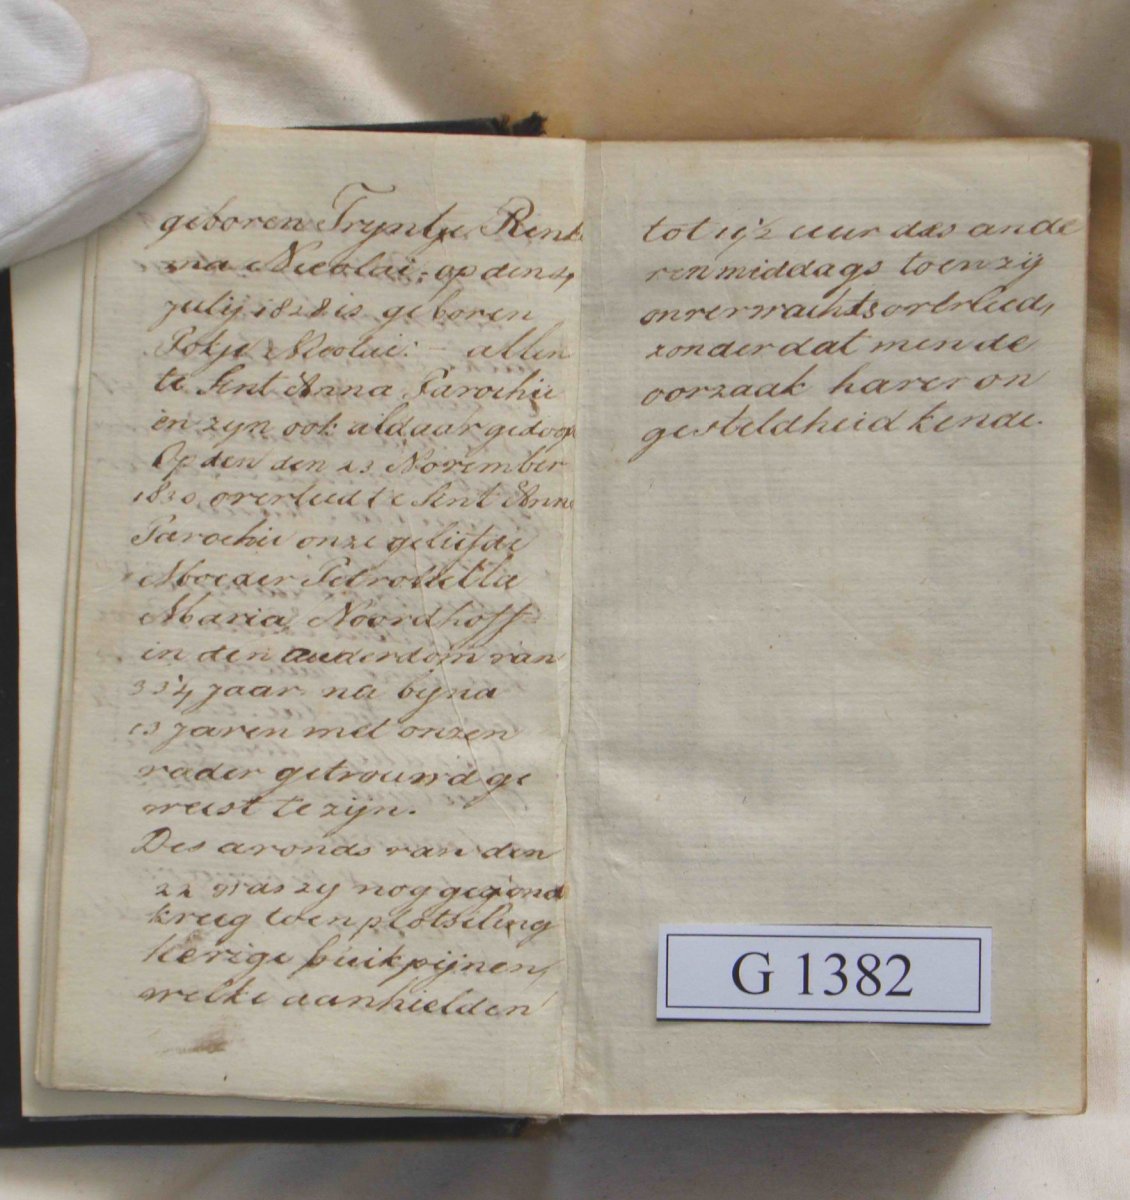 geboren Tryntje Renke
ma Nicolai; op den 4
Julij 1828 is geboren
Pokje Nicolai: — allen
te Sint Anna Parochie
en zyn ook aldaar gedoop
Op den den 23 November
1830 overleed te Sint Anne
Parochie onze geliefde
Moeder Petronella
Maria Noordhoff
in den ouderdom van
33¼ jaar na bijna
13 jaren met onzen
vader getrouwd ge
weest te zijn.
Des avonds van den
22 was zy nog gezond
kreeg toen plotseling
hevige buikpijnen,
welke aanhielden
tot ½ uur des ande
ren middags toen zij
onverwachts overleed,
zonder dat men de
oorzaak harer on
gesteldheid kende.
G 1382